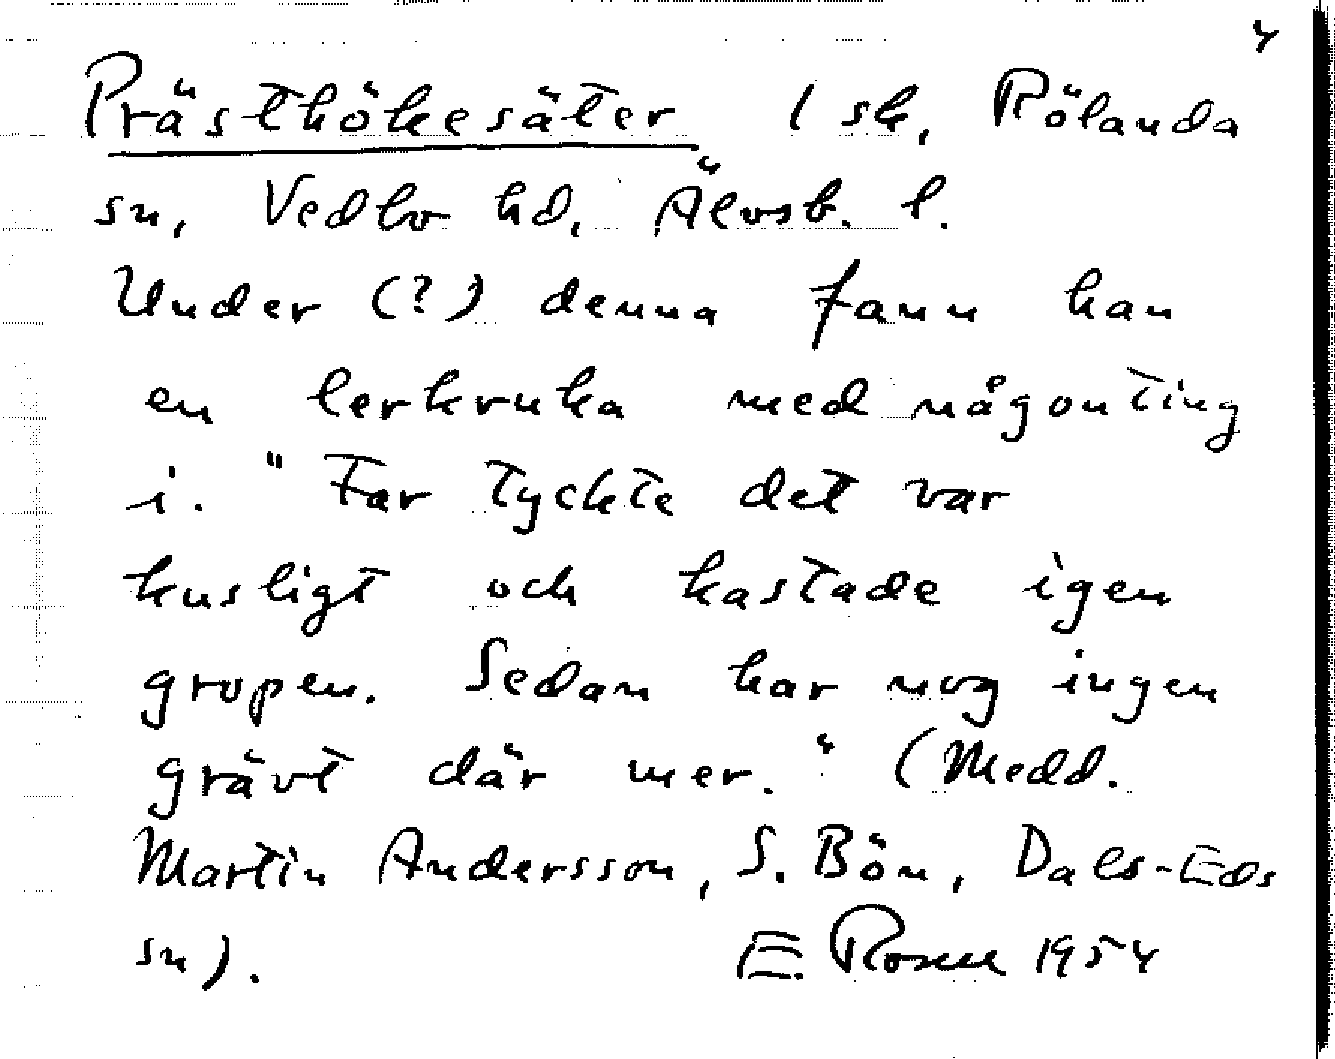 4
Prästhökesäter / sk, Rölanda
sn, Vedbo hd, Älvsb. l.
Under (?) denna fann han
en lerkruka med någonting
i. "Far tyckte det var
kusligt och kastade igen
gropen. Sedan har nog ingen
grävt där mer." (Medd.
Martin Andersson, S. Bön, Dals-Eds
sn).
E. Rosell 1954